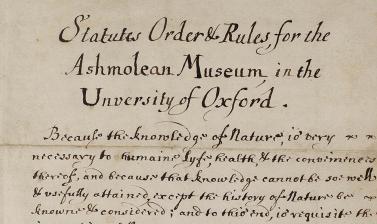 Statutes Order & Rules for the
Ashmolean Museum, in the
Unversity of Oxford.
Because the knowledge of Nature, is very
necessary to humaine lyfe health & the conveniences
thereof, and because that knowledge cannot be soe well
& usefully attained except the history of Nature be
knowne & considered; and to this end, is requisite the